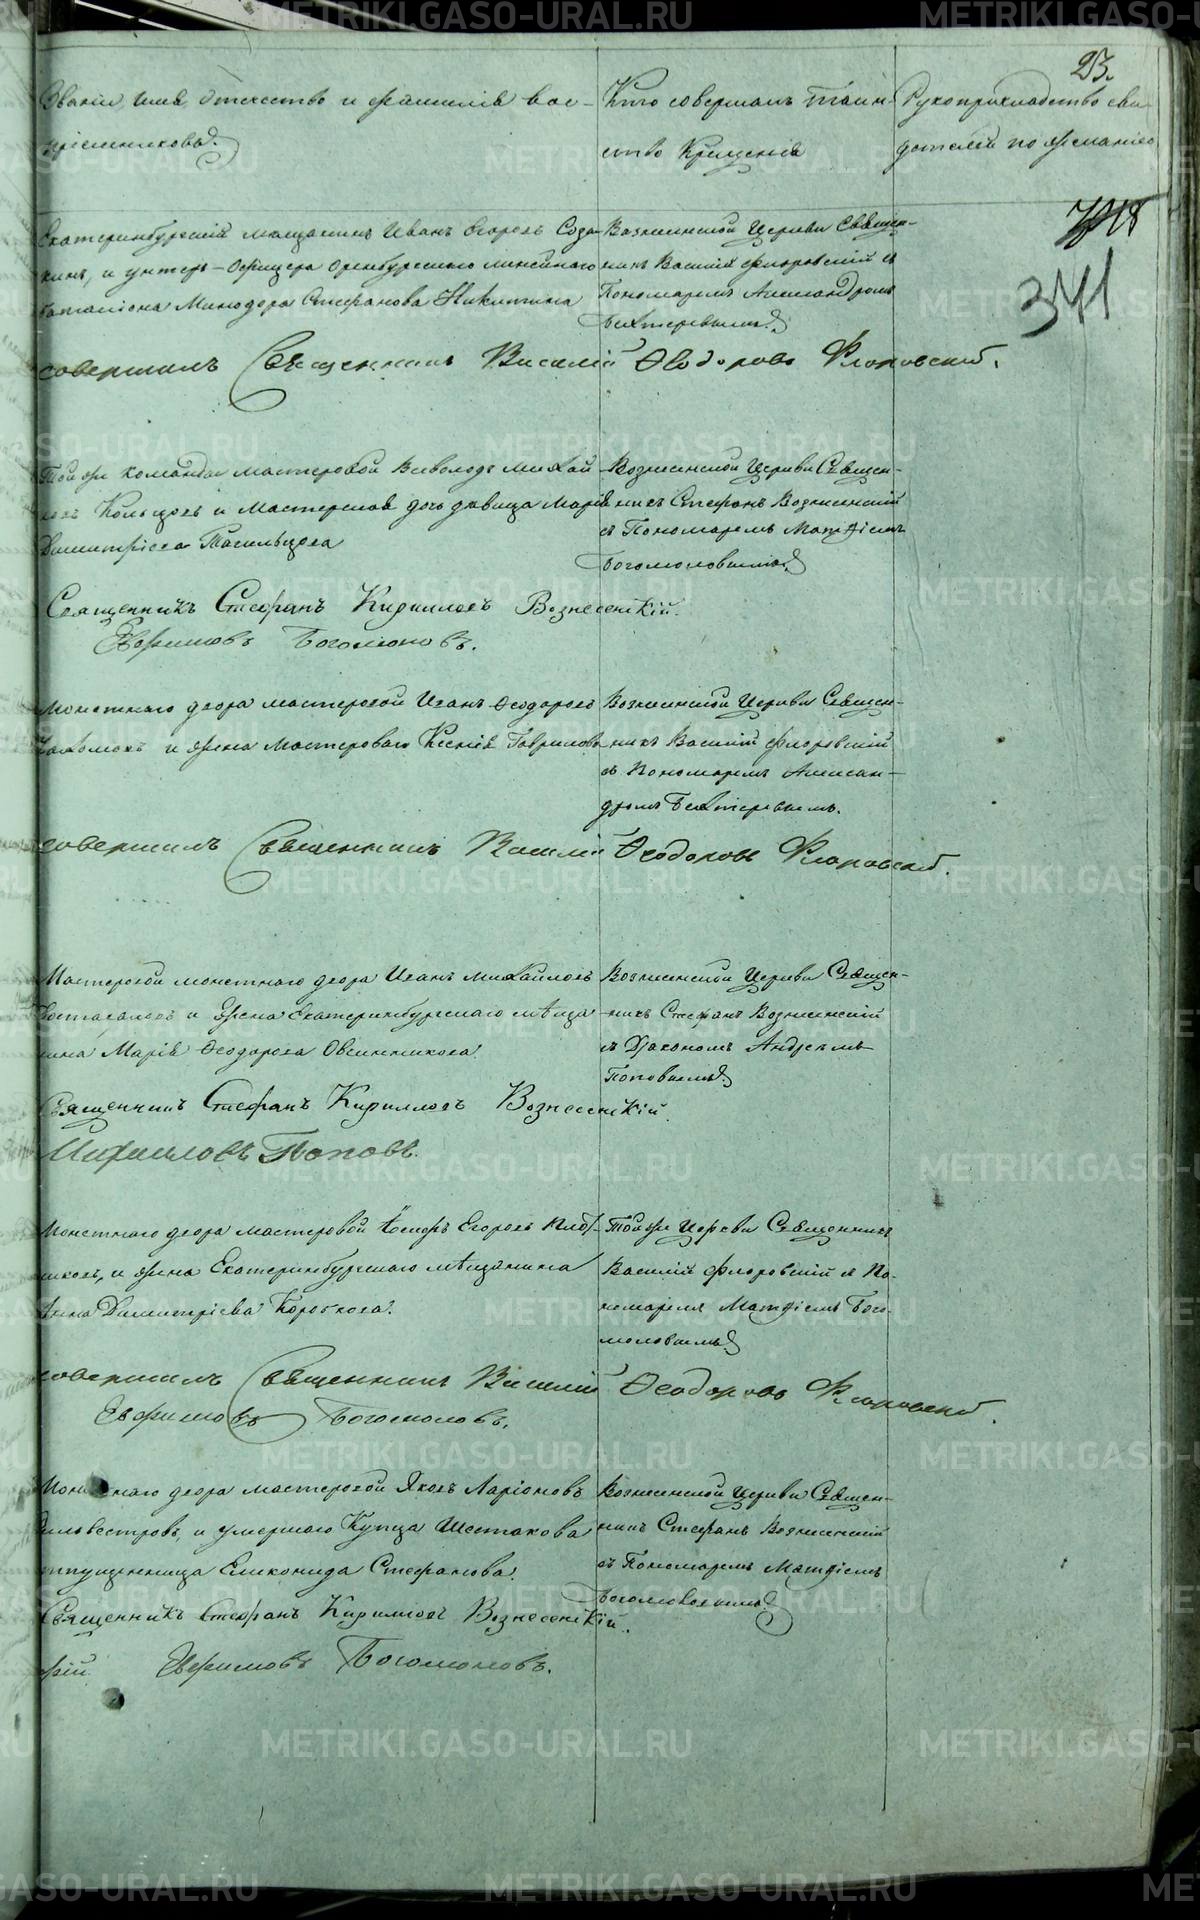 23.
Званіе, имя, отчество и фамилія вос-
пріемниковъ.
Кто совершалъ таин-
ство Крещенія
Рукоприкладство сви
детелей по желанію
341
Екатеринбургскій мещанинъ Иванъ Егоровъ Соза-
кинъ, и унтеръ-Офицера Оренбургскаго линейнаго
баталіона Минодора Стефанова Никитина
Вознесенской Церкви Священ-
никъ Василій Флоровскій съ
Пономаремъ Александромъ
Бехтеревымъ
совершилъ Священникъ Василій Ѳеодоровъ Флоровскій.
Той же команды мастеровой Всеволодъ Михай-
ловъ Кольцовъ и Мастерская дочь девица Марія
Димитріева
Вознесенской Церкви Священ-
никъ Стефанъ Вознесенскій
съ Пономаремъ Матѳіемъ
Богомоловымъ
Священникъ Стефанъ Кирилловъ Вознесенскій.
Евфимовъ Богомоловъ.
Монетнаго двора мастеровой Иванъ Ѳеодоровъ
и жена Мастероваго Ксенія Гаврилова
Вознесенской Церкви Священ-
никъ Василій Флоровскій
съ Пономаремъ Алексан-
дромъ Бехтеревымъ.
совершилъ Священникъ Василій Ѳеодоровъ Флоровскій.
Мастеровой монетнаго двора Иванъ Михайловъ
и Жена Екатеринбургскаго мѣща
нина Марія Ѳеодорова Овсянникова
Вознесенской Церкви Священ-
никъ Стефанъ Вознесенскій
съ Діакономъ Андреемъ
Поповымъ
Священникъ Стефанъ Кирилловъ Вознесенскій.
Попов.
Монетнаго двора мастеровой Іосифъ Егоровъ
и жена Екатеринбургскаго мѣщанина
Анна Димитріева Короткова.
Той же Церкви Священникъ
Василій Флоровскій съ По-
номаремъ Матѳіемъ Бого-
моловымъ
совершилъ Священникъ Василій Ѳеодоровъ Флоровскій.
Евфимовъ Богомоловъ.
Монетнаго двора мастеровой Яковъ Ларіоновъ
Сильвестровъ, и умершаго Купца Шестакова
отпущенница Еликонида Стефанова.
Вознесенской Церкви Священ-
никъ Стефанъ Вознесенскій
съ Пономаремъ Матѳіемъ
Богомоловымъ
Священникъ Стефанъ Кирилловъ Вознесенскій.
Евфимовъ Богомоловъ.
METRIKI.GASO-URAL.RU